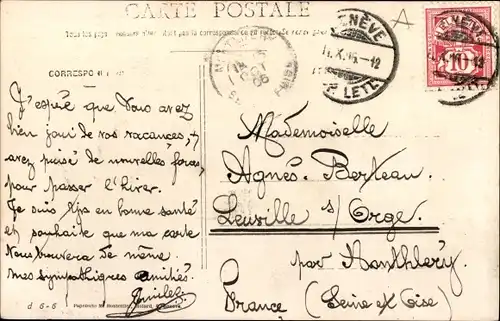 CARTE POSTALE
GENÈVE
LETT.
10
J'espère que vous avez
bien joui de vos vacances, et
avez puisé de nouvelles forces,
pour passer l'hiver.
Je suis en bonne santé
et souhaite que ma carte
vous trouvera de même.
Mes sympathiques amitiés.
Mademoiselle
Agnès Berteau
Leuville s/ Orge
par Monthléry
France (Seine et Oise)
d 6-6